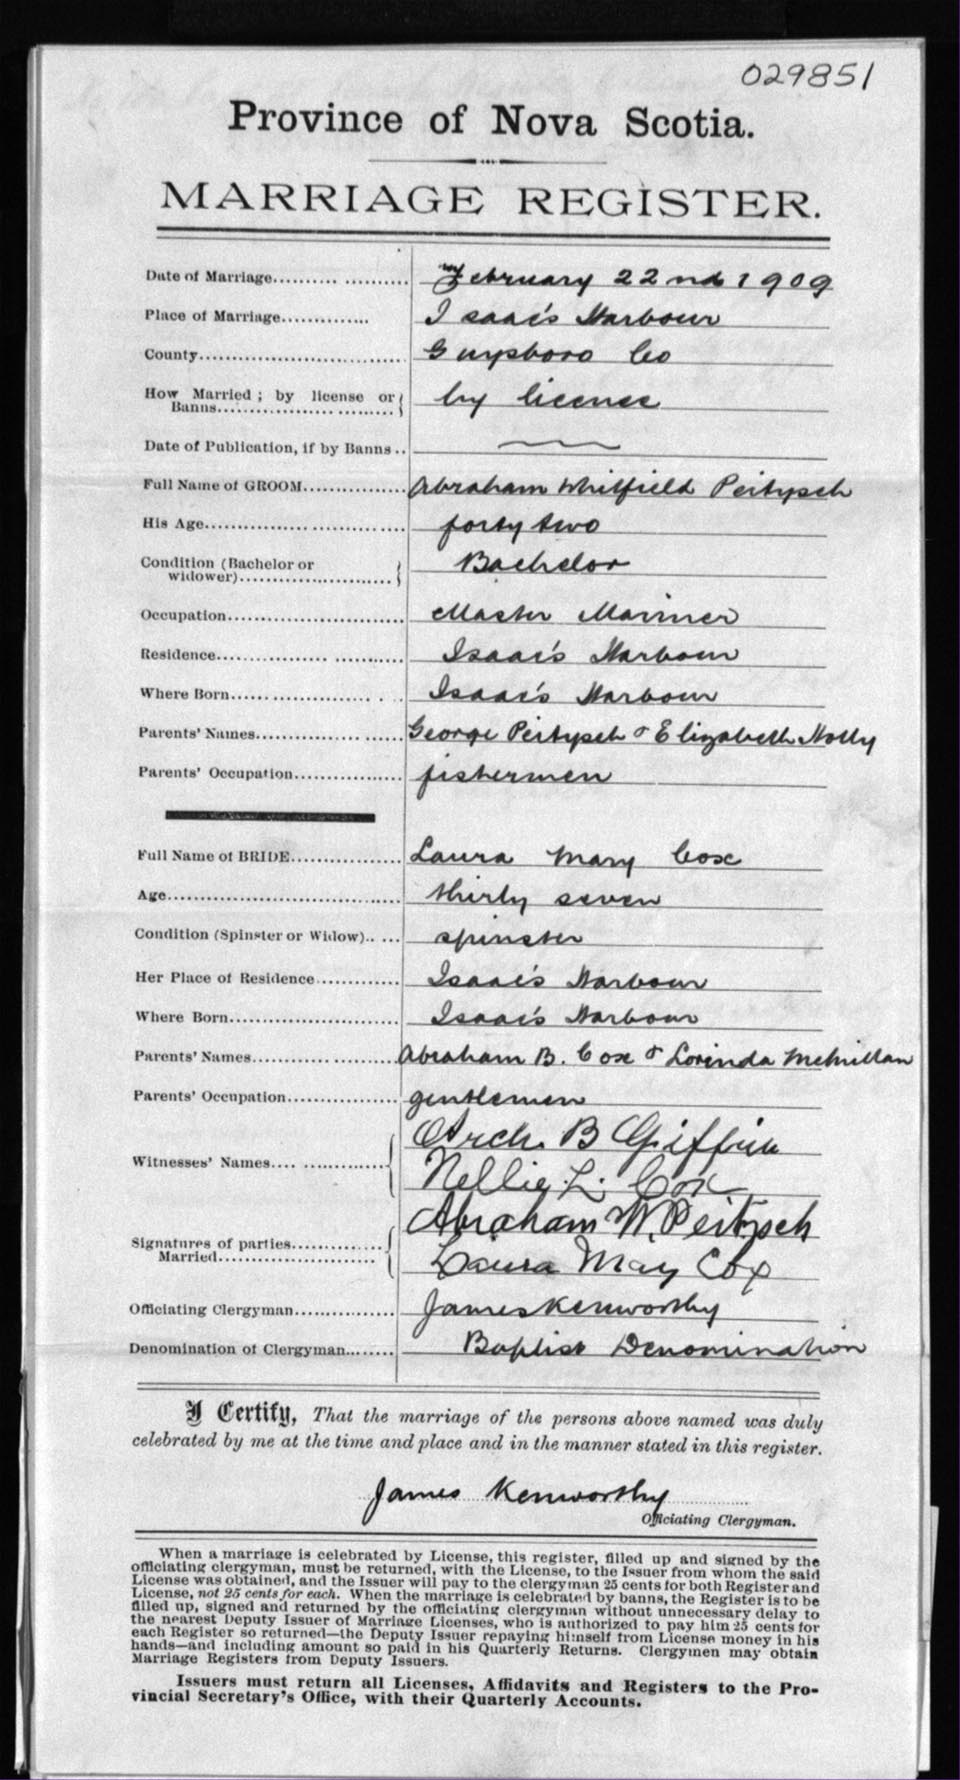 029851
Province of Nova Scotia.
MARRIAGE REGISTER.
Date of Marriage.................... February 22nd 1909
Place of Marriage.............. Isaac's Harbour
County................................ Guysboro Co
How Married; by license or
Banns................................ by licence
Date of Publication, if by Banns..
Full Name of GROOM............... Abraham Whitfield Peitzsch
His Age................................ forty two
Condition (Bachelor or
widower)........................ Bachelor
Occupation............................ Master Mariner
Residence............................ Isaac's Harbour
Where Born........................ Isaac's Harbour
Parents' Names...................... George Peitzsch & Elizabeth Holly
Parents' Occupation................ fishermen
Full Name of BRIDE................ Laura Mary Cox
Age.................................... thirty seven
Condition (Spinster or Widow)..... spinster
Her Place of Residence............ Isaac's Harbour
Where Born.......................... Isaac's Harbour
Parents' Names...................... Abraham B. Cox & Lorinda McMillan
Parents' Occupation................ gentlemen
Arch. B Giffin
Witnesses' Names.................
Nellie. L. Cox
Abraham W. Peitzsch
Signatures of parties..............
Married........................
Laura May Cox
Officiating Clergyman.............. James Kenworthy
Denomination of Clergyman........ Baptist Denomination
I Certify, That the marriage of the persons above named was duly
celebrated by me at the time and place and in the manner stated in this register.
James Kenworthy
Officiating Clergyman.
When a marriage is celebrated by License, this register, filled up and signed by the
officiating clergyman, must be returned, with the License, to the Issuer from whom the said
License was obtained, and the Issuer will pay to the clergyman 25 cents for both Register and
License, not 25 cents for each. When the marriage is celebrated by banns, the Register is to be
filled up, signed and returned by the officiating clergyman without unnecessary delay to
the nearest Deputy Issuer of Marriage Licenses, who is authorized to pay him 25 cents for
each Register so returned—the Deputy Issuer repaying himself from License money in his
hands—and including amount so paid in his Quarterly Returns. Clergymen may obtain
Marriage Registers from Deputy Issuers.
Issuers must return all Licenses, Affidavits and Registers to the Pro-
vincial Secretary's Office, with their Quarterly Accounts.